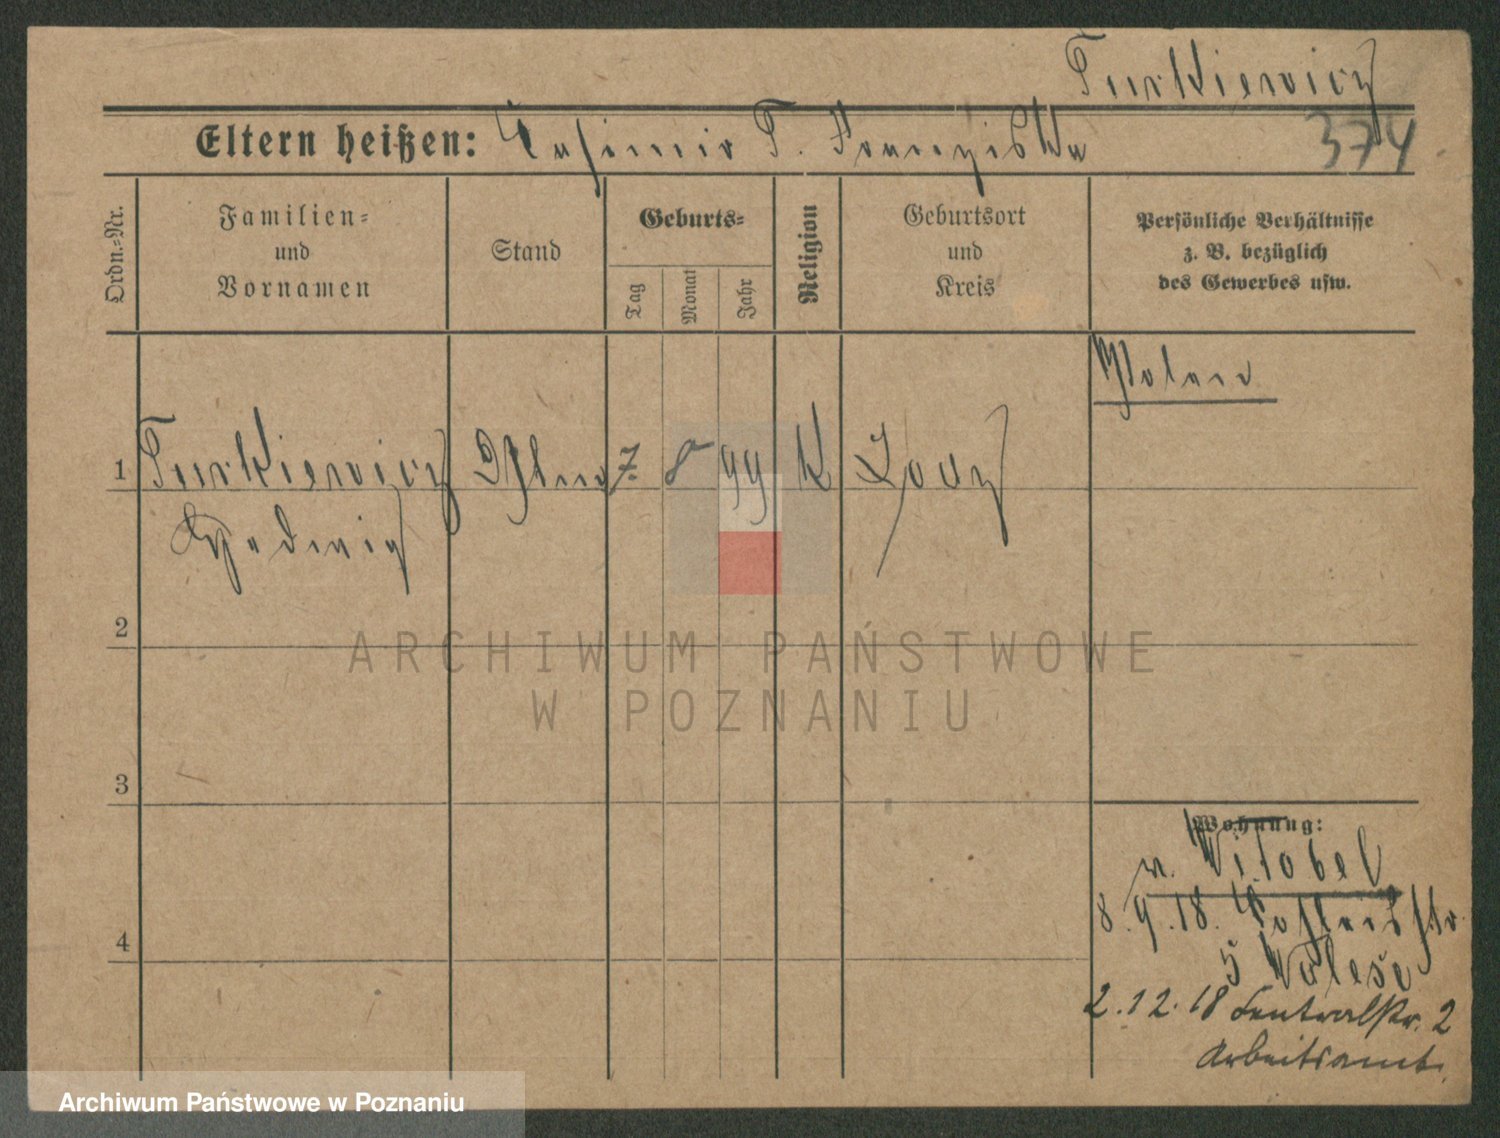 Turkiewicz
Eltern heißen: Casimir T. Franziska
374
Ordn.-Nr.
Familien-
und
Vornamen
Stand
Geburts-
Tag
Monat
Jahr
Religion
Geburtsort
und
Kreis
Persönliche Verhältnisse
z. B. bezüglich
des Gewerbes usw.
Polen
1 Turkiewicz 7. 8 99 K
Hedwig
2
3
4
Wohnung:
v. Witobel
8.9.18.
5
2.12.18 Centralstr. 2
Arbeitsamt.
ARCHIWUM PAŃSTWOWE
W POZNANIU
Archiwum Państwowe w Poznaniu